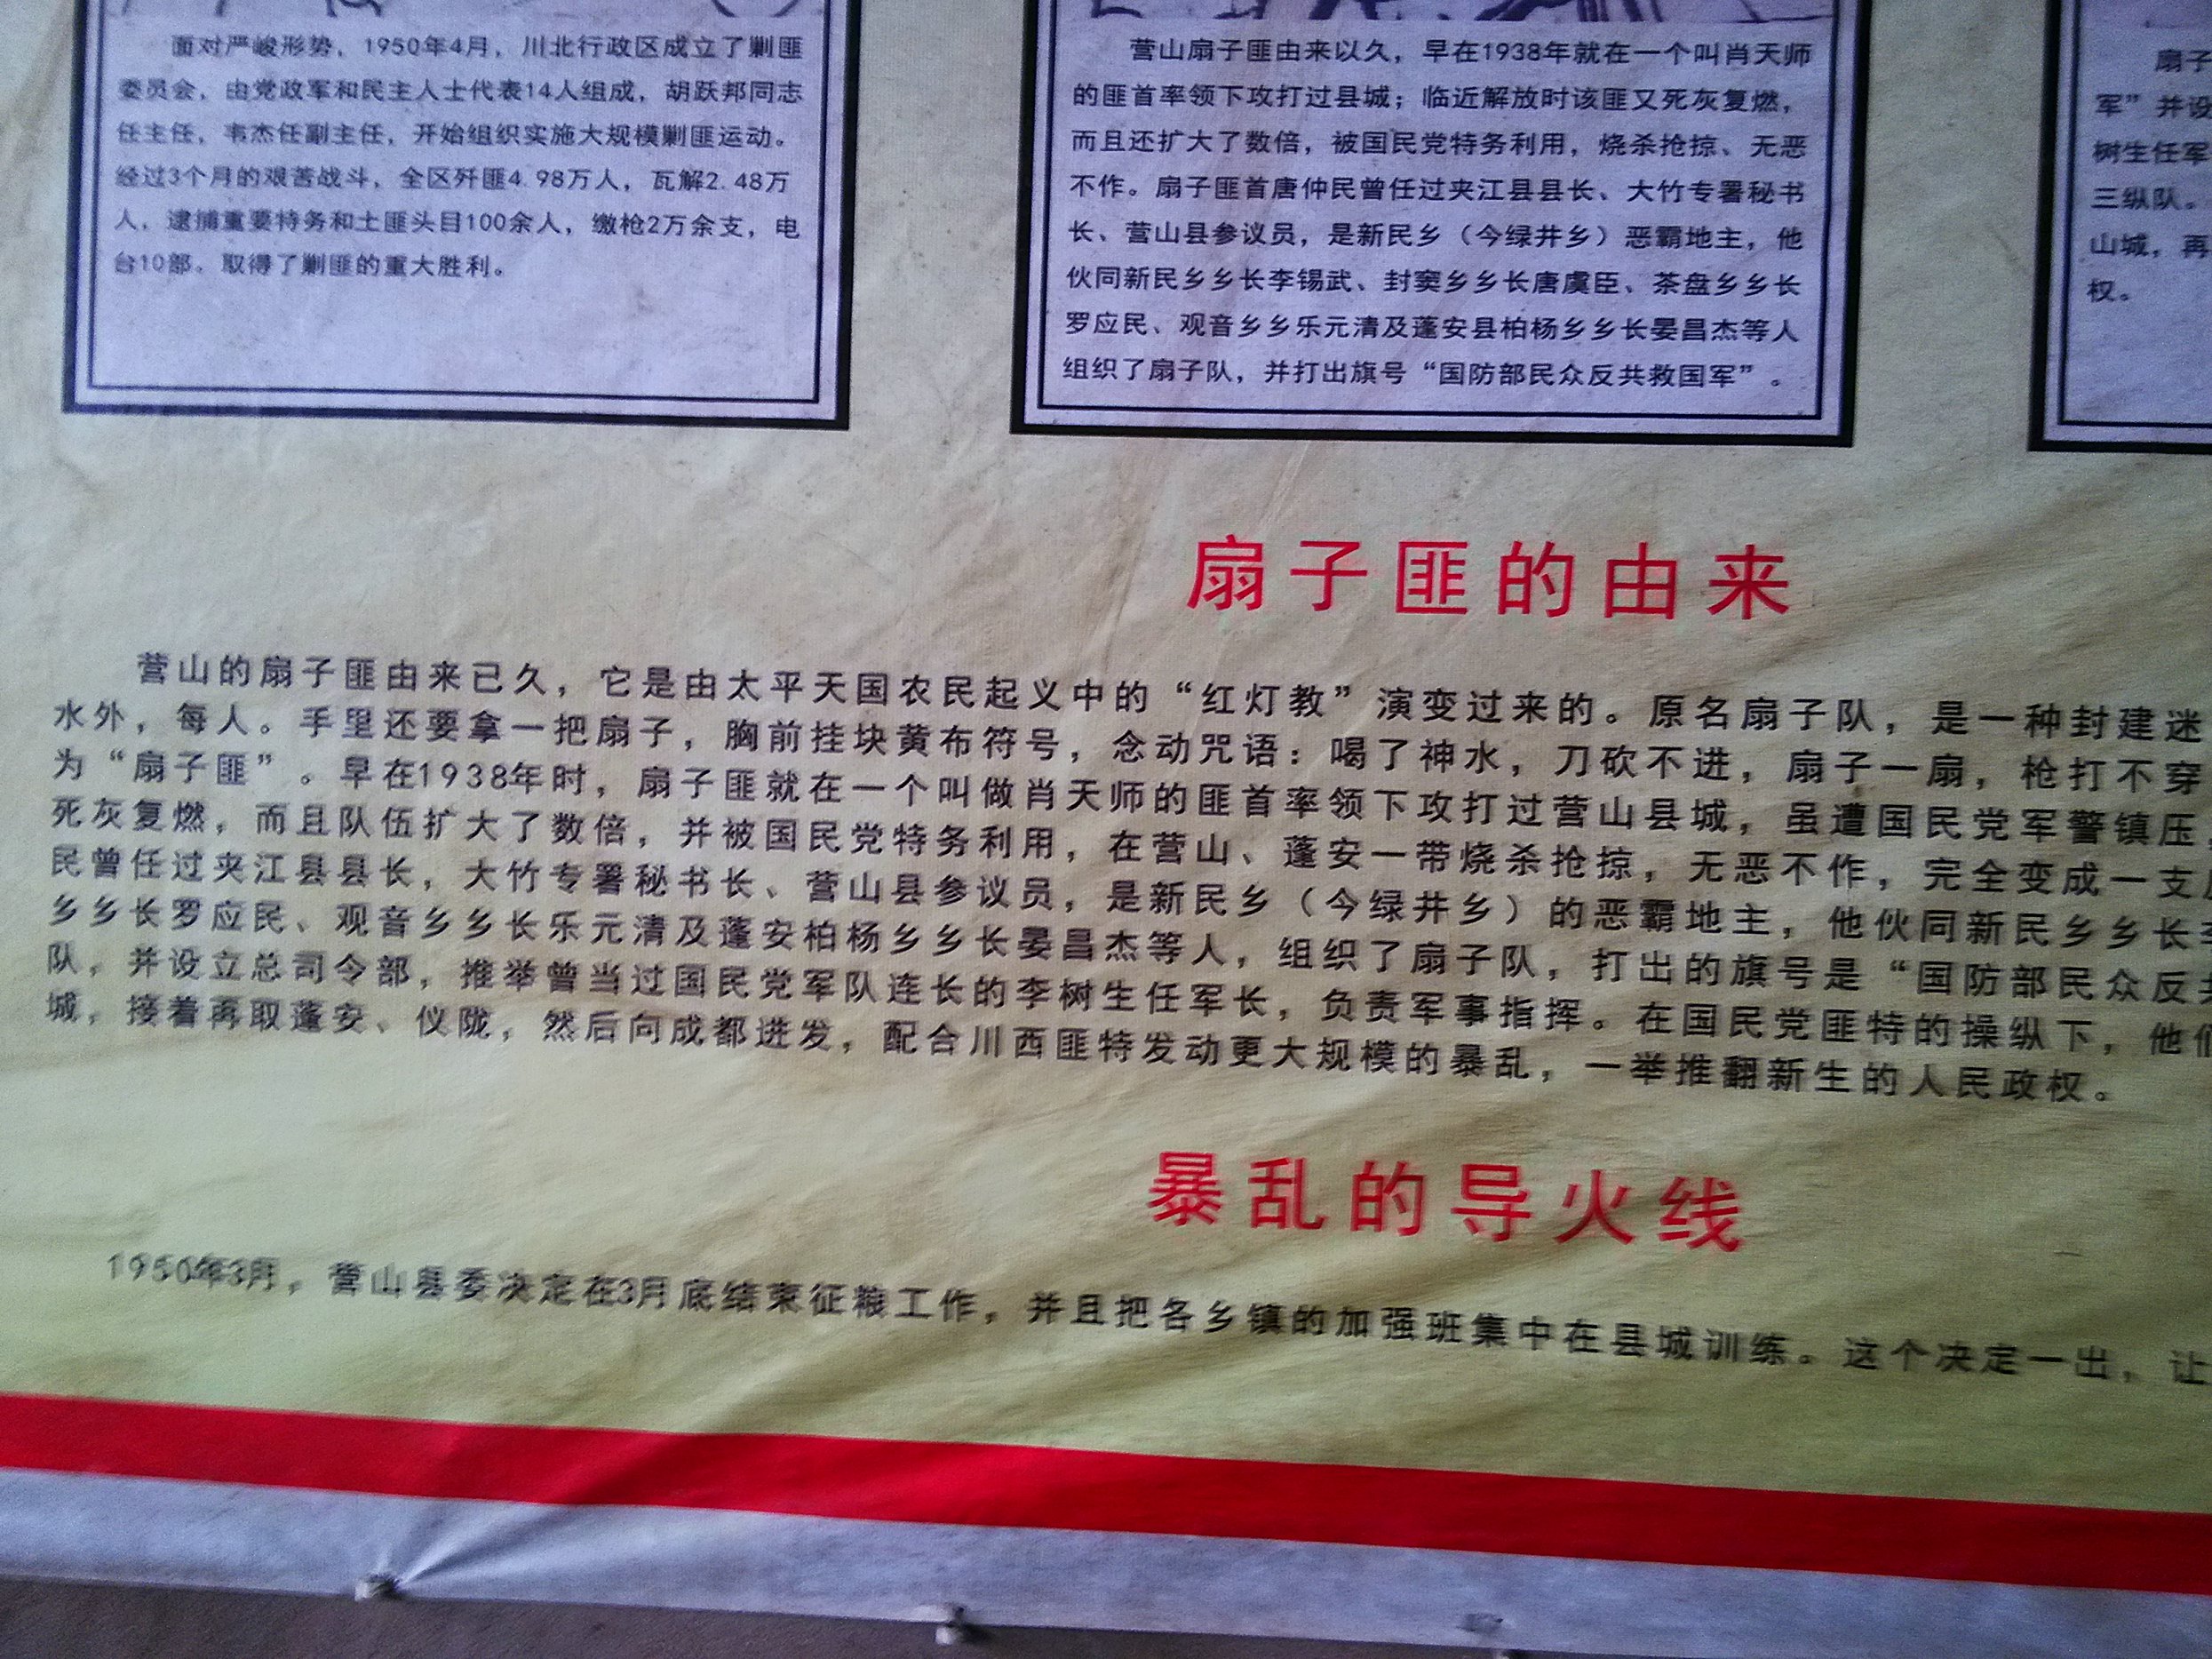 面对严峻形势，1950年4月，川北行政区成立了剿匪
委员会，由党政军和民主人士代表14人组成，胡跃邦同志
任主任，韦杰任副主任，开始组织实施大规模剿匪运动。
经过3个月的艰苦战斗，全区歼匪4.98万人，瓦解2.48万
人，逮捕重要特务和土匪头目100余人，缴枪2万余支，电
台10部。取得了剿匪的重大胜利。
营山扇子匪由来以久，早在1938年就在一个叫肖天师
的匪首率领下攻打过县城；临近解放时该匪又死灰复燃，
而且还扩大了数倍，被国民党特务利用，烧杀抢掠、无恶
不作。扇子匪首唐仲民曾任过夹江县县长、大竹专署秘书
长、营山县参议员，是新民乡（今绿井乡）恶霸地主，他
伙同新民乡乡长李锡武、封窦乡乡长唐虞臣、茶盘乡乡长
罗应民、观音乡乡乐元清及蓬安县柏杨乡乡长晏昌杰等人
组织了扇子队，并打出旗号“国防部民众反共救国军”。
扇子
军”并设
树生任军
三纵队。
山城，再
权。
扇子匪的由来
营山的扇子匪由来已久，它是由太平天国农民起义中的“红灯教”演变过来的。原名扇子队，是一种封建迷
水外，每人。手里还要拿一把扇子，胸前挂块黄布符号，念动咒语：喝了神水，刀砍不进，扇子一扇，枪打不穿
为“扇子匪”。早在1938年时，扇子匪就在一个叫做肖天师的匪首率领下攻打过营山县城，虽遭国民党军警镇压，
死灰复燃，而且队伍扩大了数倍，并被国民党特务利用，在营山、蓬安一带烧杀抢掠，无恶不作，完全变成一支
民曾任过夹江县县长，大竹专署秘书长、营山县参议员，是新民乡（今绿井乡）的恶霸地主，他伙同新民乡乡长
乡乡长罗应民、观音乡乡长乐元清及蓬安柏杨乡乡长晏昌杰等人，组织了扇子队，打出的旗号是“国防部民众反
队，并设立总司令部，推举曾当过国民党军队连长的李树生任军长，负责军事指挥。在国民党匪特的操纵下，他们
城，接着再取蓬安、仪陇，然后向成都进发，配合川西匪特发动更大规模的暴乱，一举推翻新生的人民政权。
暴乱的导火线
1950年3月，营山县委决定在3月底结束征粮工作，并且把各乡镇的加强班集中在县城训练。这个决定一出，让